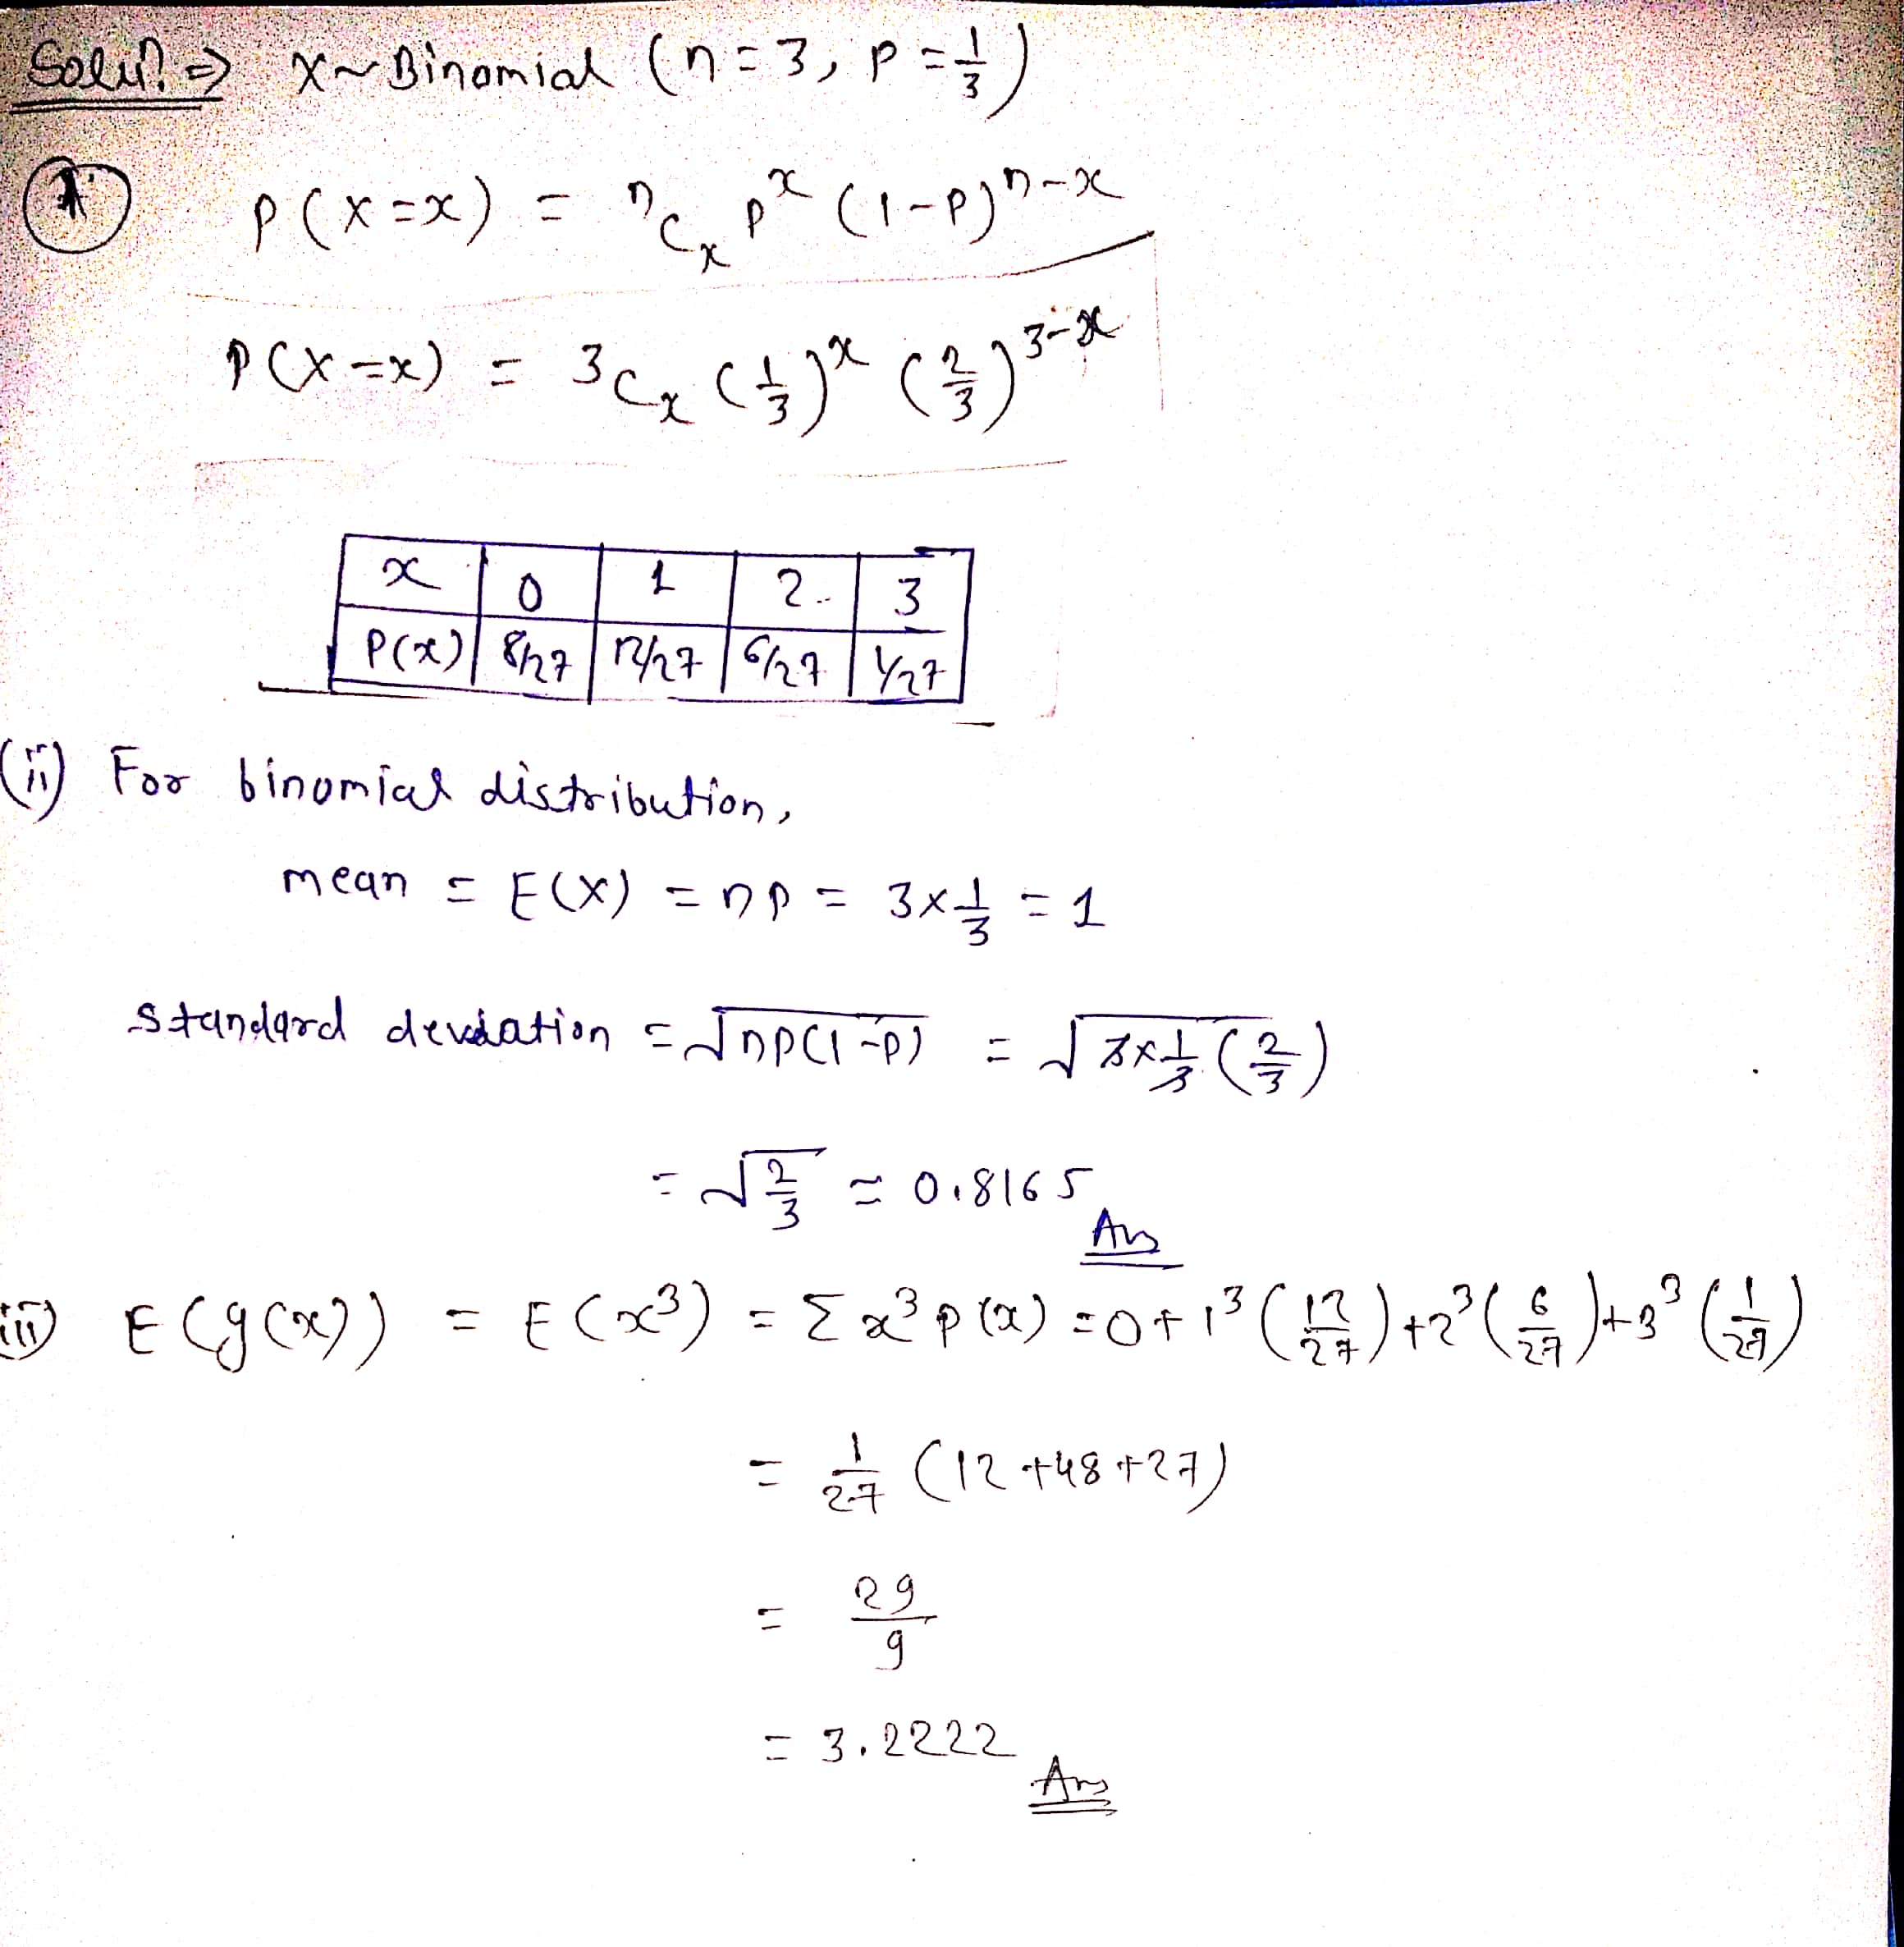 Solun. ⇒ X ~ Binomial (n = 3, p = 1/3)
① P(X=x) = ⁿCₓ pˣ (1-p)ⁿ⁻ˣ
P(X=x) = ³Cₓ (1/3)ˣ (2/3)³⁻ˣ
x 0 1 2 3
P(x) 8/27 12/27 6/27 1/27
(ii) For binomial distribution,
mean = E(X) = np = 3×1/3 = 1
standard deviation = √np(1-p) = √3×1/3 (2/3)
= √2/3 ≈ 0.8165 Ans
iii) E(g(x)) = E(x³) = Σ x³ p(x) = 0 + 1³ (12/27) + 2³ (6/27) + 3³ (1/27)
= 1/27 (12 + 48 + 27)
= 29/9
= 3.2222 Ans